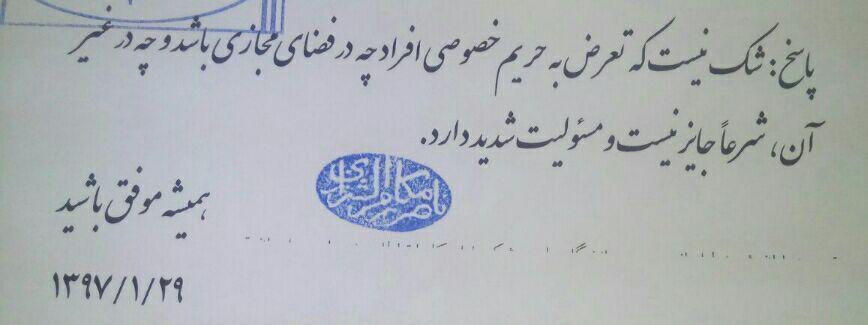 پاسخ: شک نیست که تعرض به حریم خصوصی افراد چه در فضای مجازی باشد و چه در غیر
آن، شرعاً جایز نیست و مسئولیت شدید دارد.
ناصر مکارم شیرازی
همیشه موفق باشید
۱۳۹۷/۱/۲۹